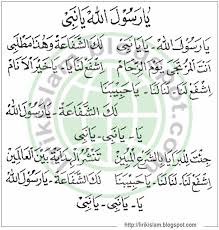 يَارَسُوْلَ اللهْ يَانَبِىْ
يَارَسُوْلَ اللهْ - يَا - يَانَبِىْ لَكَ الشَّفَاعَةْ وَهٰذَا مَطْلَبِىْ
اَنْتَ الْمُرْتَجَى يَوْمَ الزِّحَامِ اِشْفَعْ لَنَا - لَنَا - يَا - خَيْرَ الْاَنَامِ
اِشْفَعْ لَنَا - لَنَا - يَا - حَبِيْبَنَا لَكَ الشَّفَاعَةْ - يَارَسُوْلَ اللهْ
يَا - نَبِىْ - يَا - نَبِىْ
جِئْتَ لِلْبَرَايَا بِالشَّرْعِ الْمُبِيْنِ تَنْشُرُ الْهِدَايَةْ بَيْنَ الْعَالَمِيْنَ
اِشْفَعْ لَنَا - لَنَا - يَا - حَبِيْبَنَا لَكَ الشَّفَاعَةْ - يَارَسُوْلَ اللهْ
يَا - نَبِىْ - يَا - نَبِىْ
http://lirikislam.blogspot.com